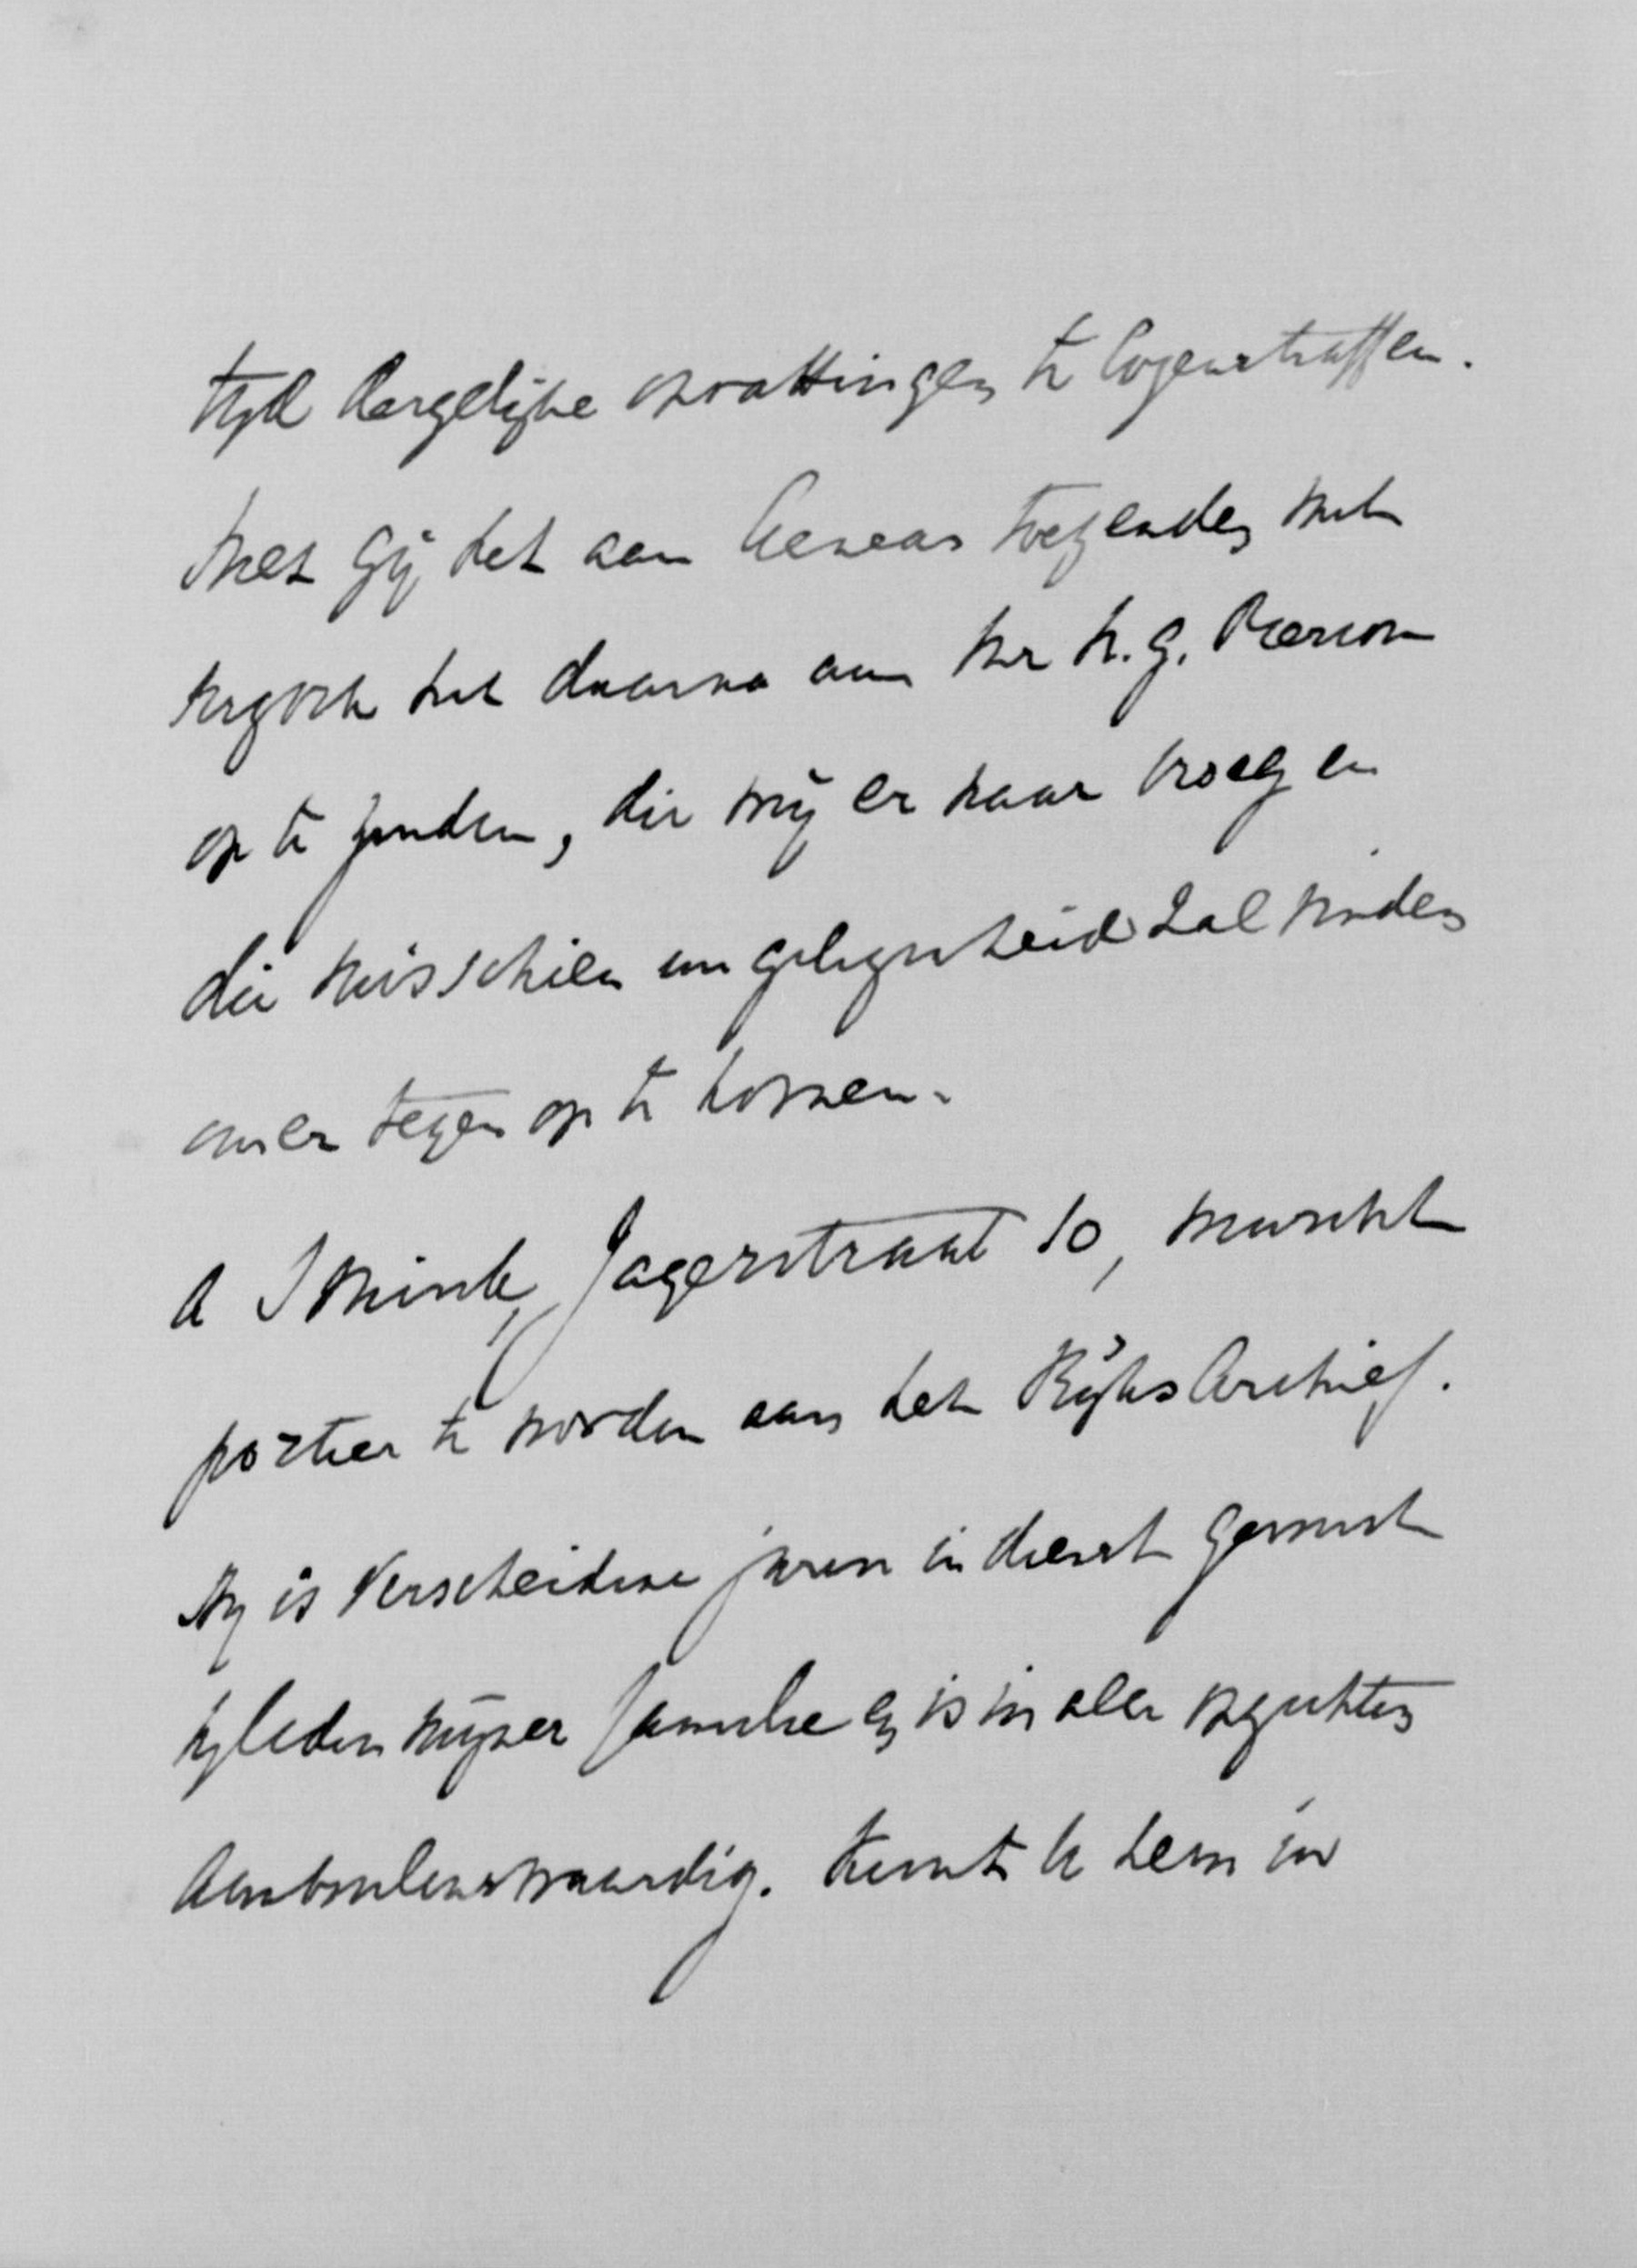 tijd dergelijke opvattingen te logenstraffen.
Moet gij het aan Aeneas toezenden met
verzoek het daarna aan Mr N.G. Pierson
op te zenden, die mij er naar vroeg en
die misschien een gelegenheid zal vinden
om er tegen op te komen.
A Smink, Jagerstraat 10, wenscht
portier te worden aan het RijksArchief.
Hij is verscheidene jaren in dienst geweest
bij leden mijner familie en is in alle opzichten
aanbevelenswaardig. Kunt U hem in